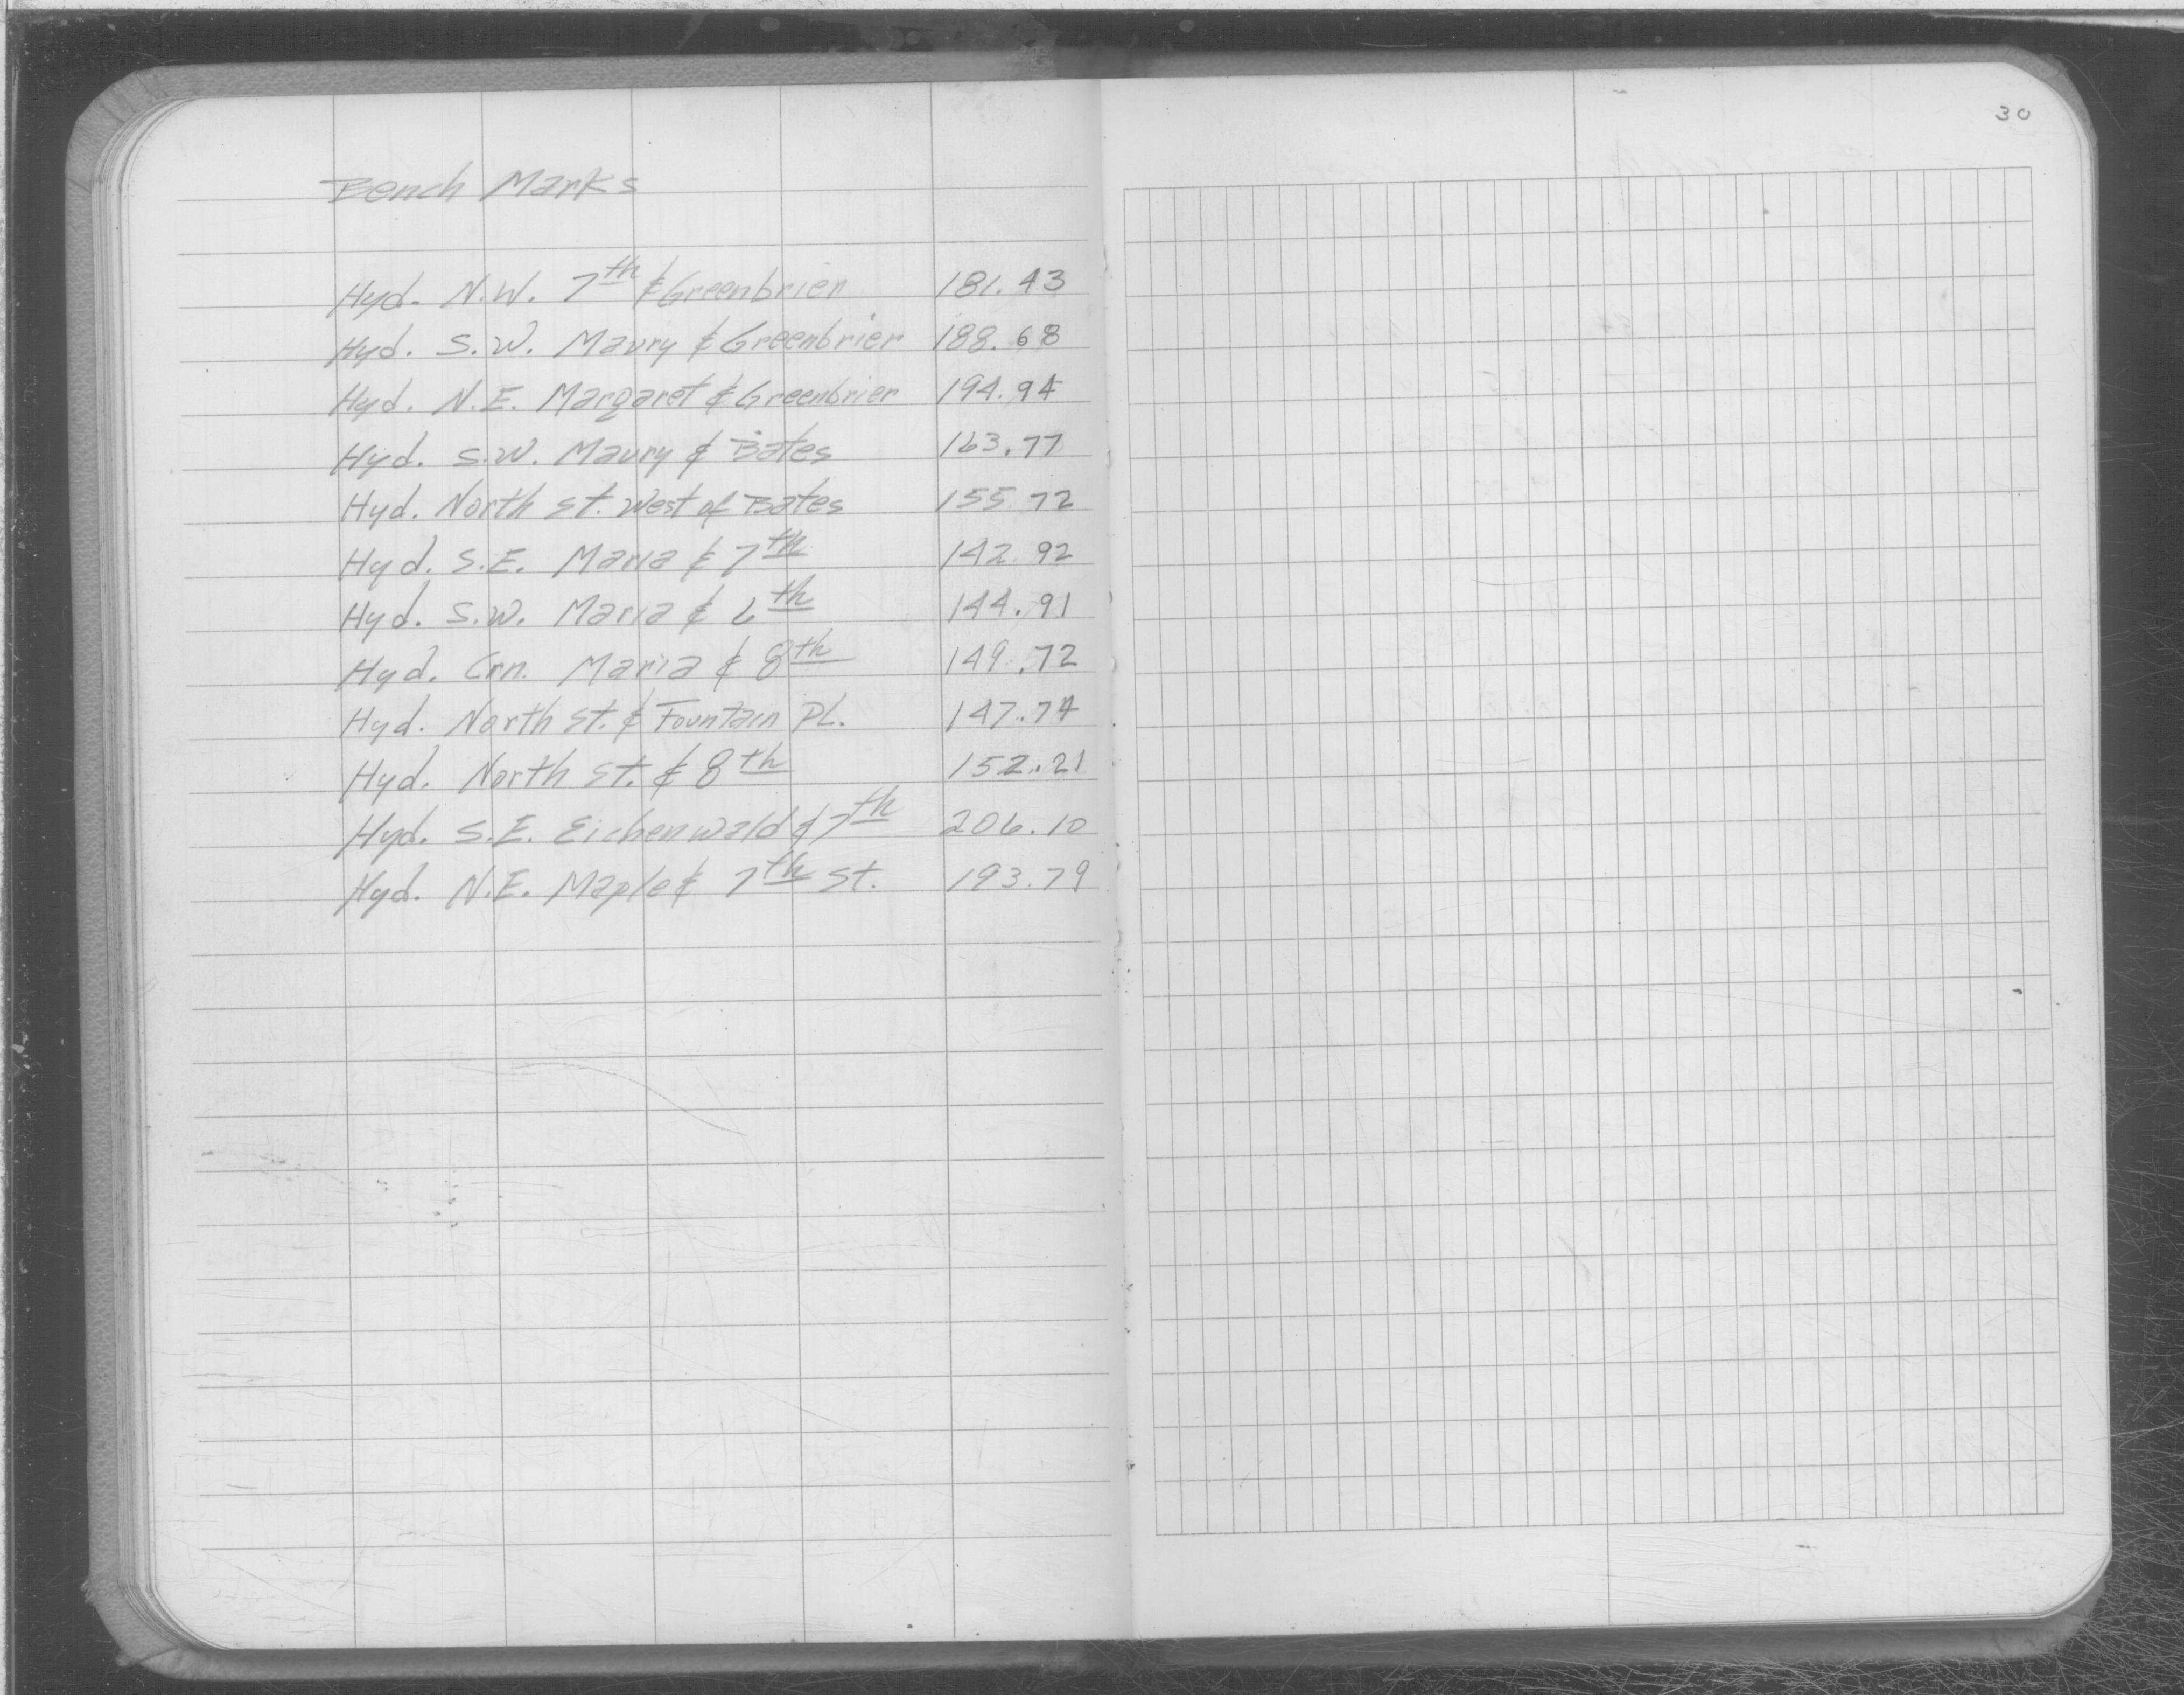 30
Bench Marks
Hyd. N.W. 7th & Greenbrier 181.43
Hyd. S.W. Maury & Greenbrier 188.68
Hyd. N.E. Margaret & Greenbrier 194.94
Hyd. S.W. Maury & Bates 163.77
Hyd. North St. West of Bates 155.72
Hyd. S.E. Maria & 7th 142.92
Hyd. S.W. Maria & 6th 144.91
Hyd. Crn. Maria & 8th 149.72
Hyd. North St. & Fountain PL. 147.74
Hyd. North St. & 8th 152.21
Hyd. S.E. Eichenwald & 7th 206.10
Hyd. N.E. Maple & 7th St. 193.79